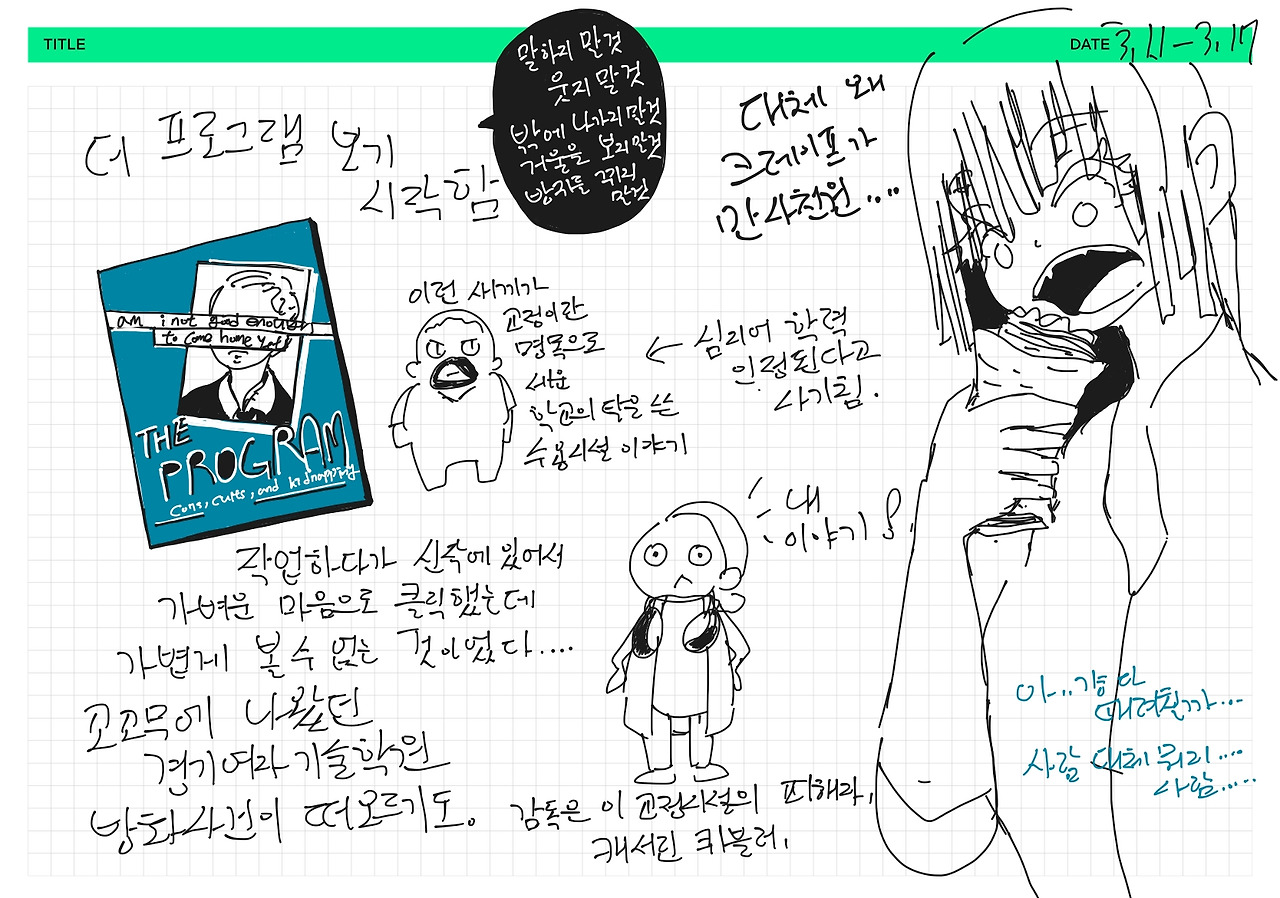 TITLE
DATE 3.11 - 3.17
더 프로그램 보기
시작함
말하지 말것
웃지 말것
밖에 나가지 말것
거울을 보지 말것
방귀를 뀌지
말것
대체 왜
크레이프가
만사천원....
am i not good enough
to come home yet?
THE
PROGRAM
Cons, cults, and kidnapping
이런 새끼가
교정이란
명목으로
세운
학교의 탈을 쓴
수용시설 이야기
← 심리어 학력
인정된다고
사기침.
내
이야기!
작업하다가 신작에 있어서
가벼운 마음으로 클릭했는데
가볍게 볼 수 없는 것이었다....
꼬꼬무에 나왔던
경기여자기술학원
방화사건이 떠오르기도.
감독은 이 교정시설의 피해자,
캐서린 쿠블러.
아.. 걍 다
때려칠까...
사람 대체 뭐지....
사람.....